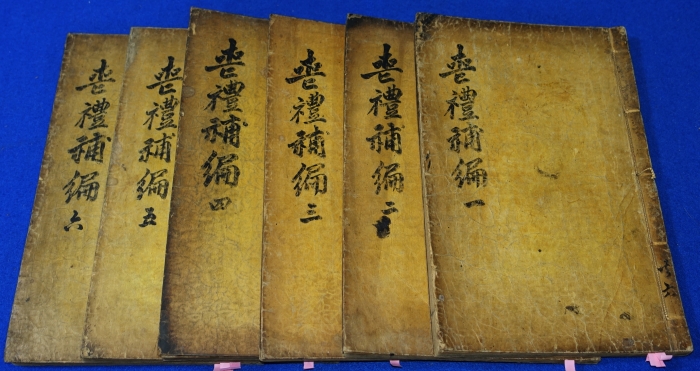 喪禮補編 一
共六
喪禮補編 二
喪禮補編 三
喪禮補編 四
喪禮補編 五
喪禮補編 六